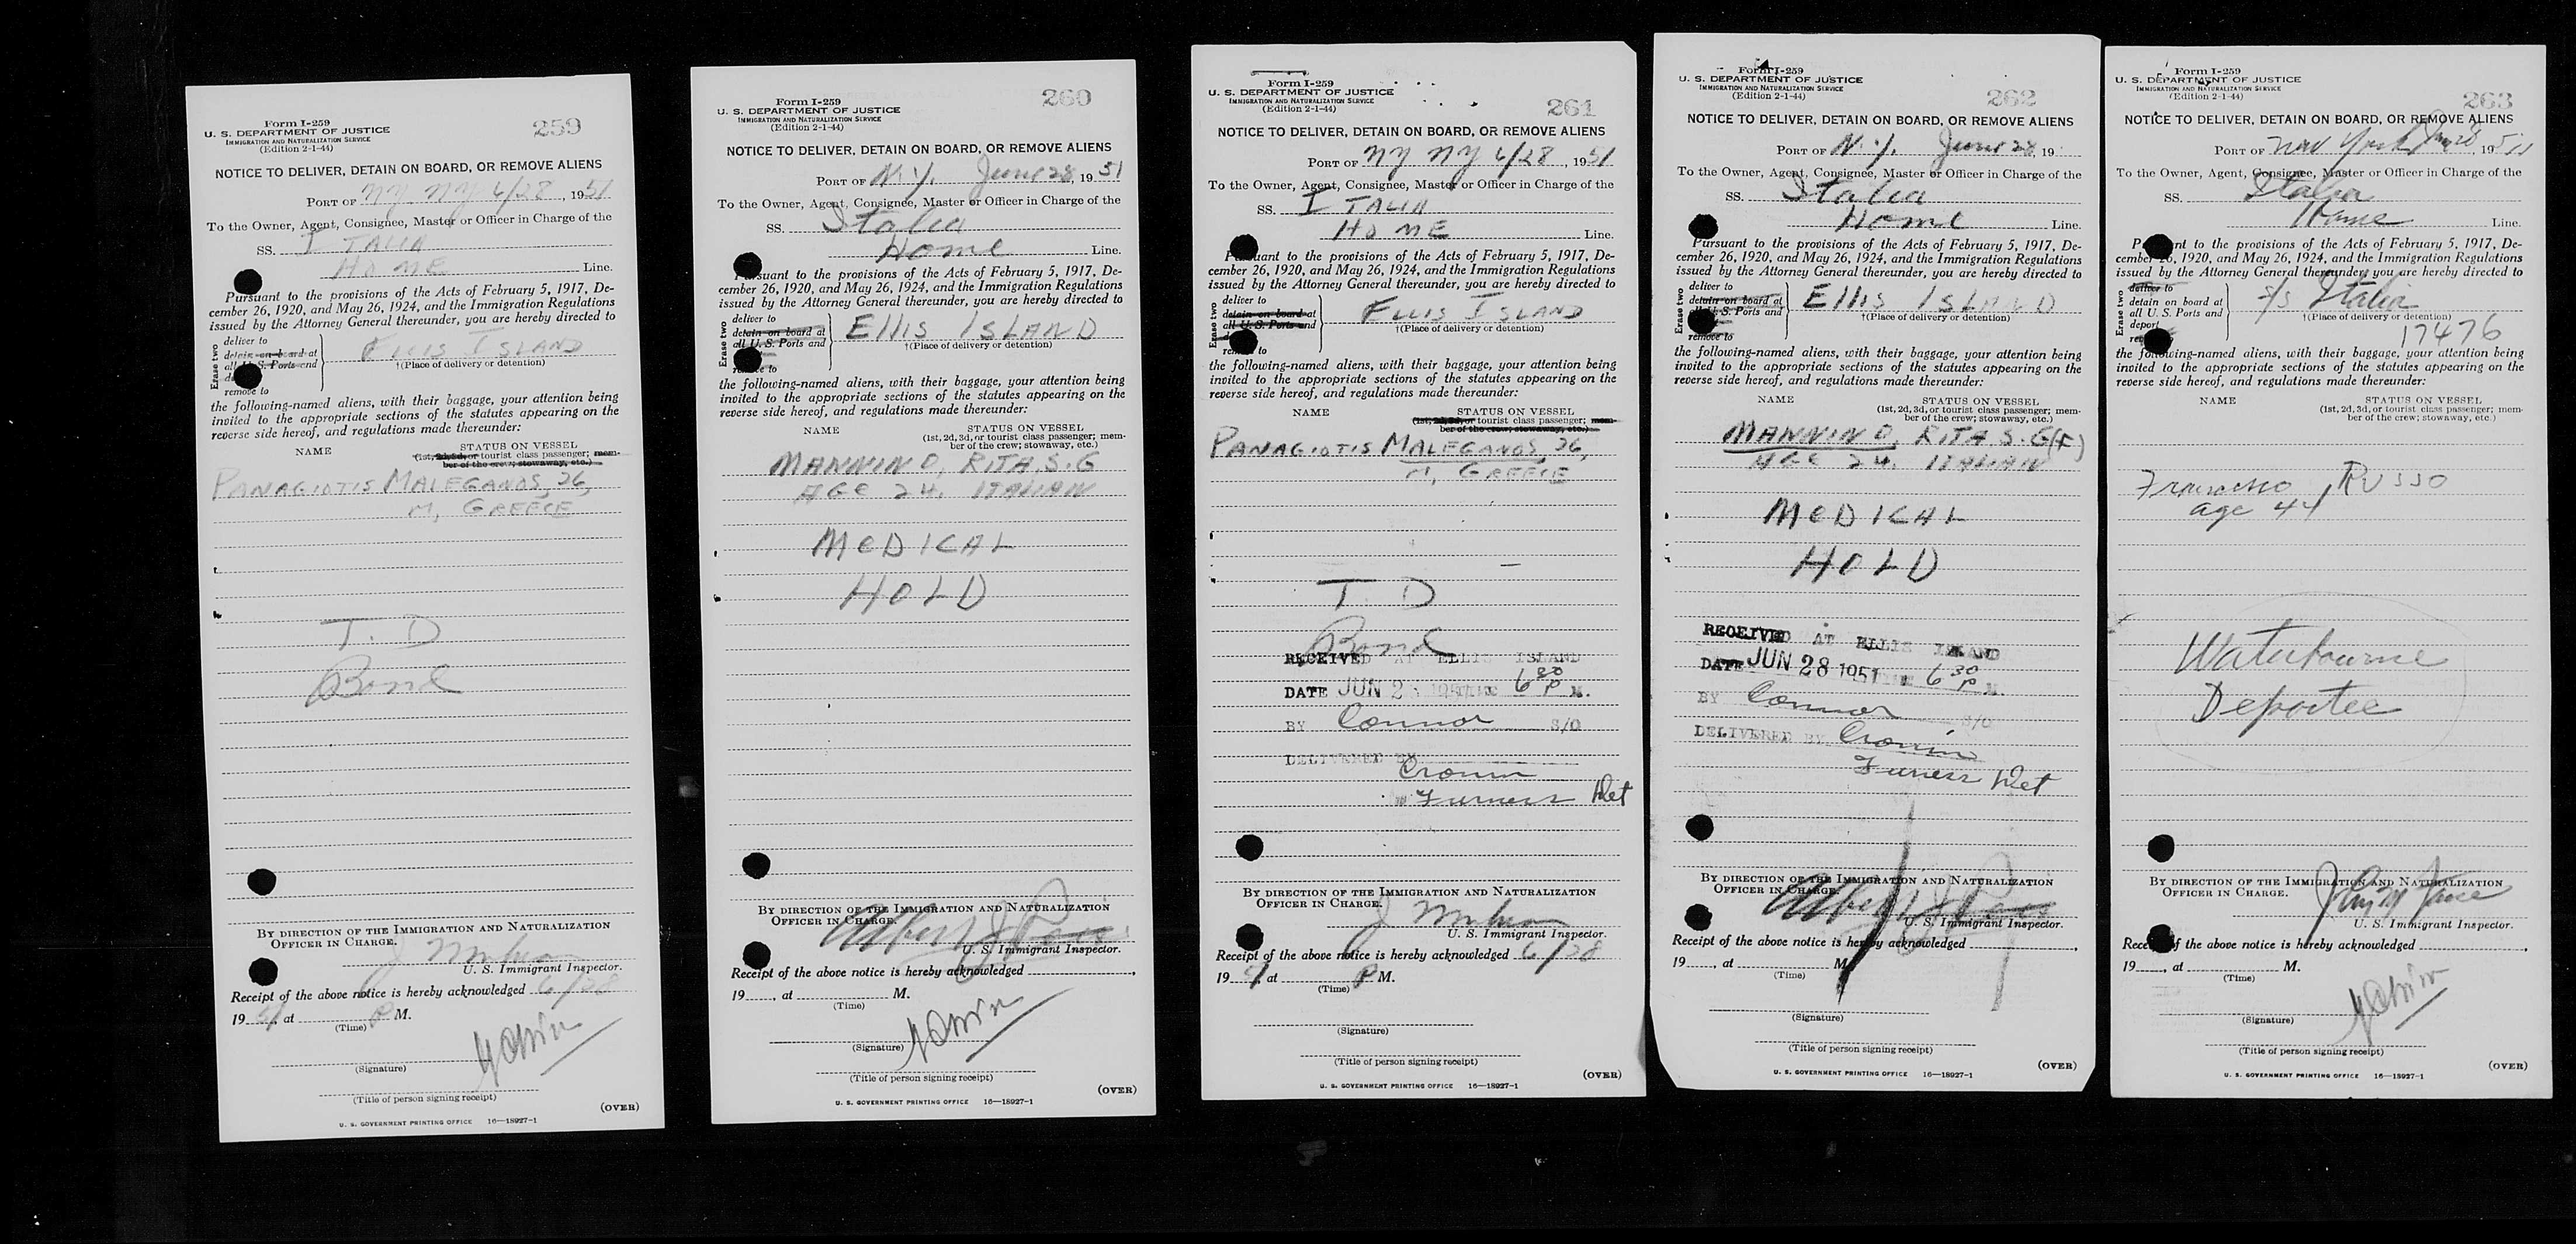 Form I-259
U. S. DEPARTMENT OF JUSTICE
IMMIGRATION AND NATURALIZATION SERVICE
(Edition 2-1-44)
259
NOTICE TO DELIVER, DETAIN ON BOARD, OR REMOVE ALIENS
PORT OF NY NY 6/28, 1951
To the Owner, Agent, Consignee, Master or Officer in Charge of the
SS. ITALIA
HOME Line.
Pursuant to the provisions of the Acts of February 5, 1917, De-
cember 26, 1920, and May 26, 1924, and the Immigration Regulations
issued by the Attorney General thereunder, you are hereby directed to
Erase two
deliver to
detain on board at
all U. S. Ports and
remove to
ELLIS ISLAND
†(Place of delivery or detention)
the following-named aliens, with their baggage, your attention being
invited to the appropriate sections of the statutes appearing on the
reverse side hereof, and regulations made thereunder:
NAME
STATUS ON VESSEL
(1st, 2d, 3d, or tourist class passenger; mem-
ber of the crew; stowaway, etc.)
PANAGIOTIS MALEGANOS, 26,
M, GREECE
T. D
Bond
BY DIRECTION OF THE IMMIGRATION AND NATURALIZATION
OFFICER IN CHARGE.
U. S. Immigrant Inspector.
Receipt of the above notice is hereby acknowledged 6/28
1951, at P M.
(Time)
(Signature)
(Title of person signing receipt)
(OVER)
U. S. GOVERNMENT PRINTING OFFICE 16—18927-1
Form I-259
U. S. DEPARTMENT OF JUSTICE
IMMIGRATION AND NATURALIZATION SERVICE
(Edition 2-1-44)
260
NOTICE TO DELIVER, DETAIN ON BOARD, OR REMOVE ALIENS
PORT OF N.Y. June 28, 1951
To the Owner, Agent, Consignee, Master or Officer in Charge of the
SS. Italia
Home Line.
Pursuant to the provisions of the Acts of February 5, 1917, De-
cember 26, 1920, and May 26, 1924, and the Immigration Regulations
issued by the Attorney General thereunder, you are hereby directed to
Erase two
deliver to
detain on board at
all U. S. Ports and
remove to
ELLIS ISLAND
†(Place of delivery or detention)
the following-named aliens, with their baggage, your attention being
invited to the appropriate sections of the statutes appearing on the
reverse side hereof, and regulations made thereunder:
NAME
STATUS ON VESSEL
(1st, 2d, 3d, or tourist class passenger; mem-
ber of the crew; stowaway, etc.)
MANNINO, RITA S. G
AGE 24. ITALIAN
MEDICAL
HOLD
BY DIRECTION OF THE IMMIGRATION AND NATURALIZATION
OFFICER IN CHARGE.
U. S. Immigrant Inspector.
Receipt of the above notice is hereby acknowledged
19, at M.
(Time)
(Signature)
(Title of person signing receipt)
(OVER)
U. S. GOVERNMENT PRINTING OFFICE 16—18927-1
Form I-259
U. S. DEPARTMENT OF JUSTICE
IMMIGRATION AND NATURALIZATION SERVICE
(Edition 2-1-44)
261
NOTICE TO DELIVER, DETAIN ON BOARD, OR REMOVE ALIENS
PORT OF NY NY 6/28, 1951
To the Owner, Agent, Consignee, Master or Officer in Charge of the
SS. ITALIA
HOME Line.
Pursuant to the provisions of the Acts of February 5, 1917, De-
cember 26, 1920, and May 26, 1924, and the Immigration Regulations
issued by the Attorney General thereunder, you are hereby directed to
Erase two
deliver to
detain on board at
all U. S. Ports and
remove to
ELLIS ISLAND
†(Place of delivery or detention)
the following-named aliens, with their baggage, your attention being
invited to the appropriate sections of the statutes appearing on the
reverse side hereof, and regulations made thereunder:
NAME
STATUS ON VESSEL
(1st, 2d, 3d, or tourist class passenger; mem-
ber of the crew; stowaway, etc.)
PANAGIOTIS MALEGANOS, 26,
M, GREECE
T. D
Bond
RECEIVED AT ELLIS ISLAND
DATE JUN 28 1951 TIME 6 30 P M.
BY Connor S/O
DELIVERED BY Cronin
Furness Det
BY DIRECTION OF THE IMMIGRATION AND NATURALIZATION
OFFICER IN CHARGE.
U. S. Immigrant Inspector.
Receipt of the above notice is hereby acknowledged 6/28
1951, at P M.
(Time)
(Signature)
(Title of person signing receipt)
(OVER)
U. S. GOVERNMENT PRINTING OFFICE 16—18927-1
Form I-259
U. S. DEPARTMENT OF JUSTICE
IMMIGRATION AND NATURALIZATION SERVICE
(Edition 2-1-44)
262
NOTICE TO DELIVER, DETAIN ON BOARD, OR REMOVE ALIENS
PORT OF N.Y. June 28, 19
To the Owner, Agent, Consignee, Master or Officer in Charge of the
SS. Italia
Home Line.
Pursuant to the provisions of the Acts of February 5, 1917, De-
cember 26, 1920, and May 26, 1924, and the Immigration Regulations
issued by the Attorney General thereunder, you are hereby directed to
Erase two
deliver to
detain on board at
all U. S. Ports and
remove to
ELLIS ISLAND
†(Place of delivery or detention)
the following-named aliens, with their baggage, your attention being
invited to the appropriate sections of the statutes appearing on the
reverse side hereof, and regulations made thereunder:
NAME
STATUS ON VESSEL
(1st, 2d, 3d, or tourist class passenger; mem-
ber of the crew; stowaway, etc.)
MANNINO, RITA S. G (F)
AGE 24. ITALIAN
MEDICAL
HOLD
RECEIVED AT ELLIS ISLAND
DATE JUN 28 1951 TIME 6 30 P M.
BY Connor S/O
DELIVERED BY Cronin
Furness Det
BY DIRECTION OF THE IMMIGRATION AND NATURALIZATION
OFFICER IN CHARGE.
U. S. Immigrant Inspector.
Receipt of the above notice is hereby acknowledged
19, at M.
(Time)
(Signature)
(Title of person signing receipt)
(OVER)
U. S. GOVERNMENT PRINTING OFFICE 16—18927-1
Form I-259
U. S. DEPARTMENT OF JUSTICE
IMMIGRATION AND NATURALIZATION SERVICE
(Edition 2-1-44)
263
NOTICE TO DELIVER, DETAIN ON BOARD, OR REMOVE ALIENS
PORT OF New York 28, 1951
To the Owner, Agent, Consignee, Master or Officer in Charge of the
SS. Italia
Home Line.
Pursuant to the provisions of the Acts of February 5, 1917, De-
cember 26, 1920, and May 26, 1924, and the Immigration Regulations
issued by the Attorney General thereunder, you are hereby directed to
Erase two
deliver to
detain on board at
all U. S. Ports and
deport
s/s Italia
†(Place of delivery or detention)
17476
the following-named aliens, with their baggage, your attention being
invited to the appropriate sections of the statutes appearing on the
reverse side hereof, and regulations made thereunder:
NAME
STATUS ON VESSEL
(1st, 2d, 3d, or tourist class passenger; mem-
ber of the crew; stowaway, etc.)
Francesco RUSSO
age 44
Waterbourne
Deportee
BY DIRECTION OF THE IMMIGRATION AND NATURALIZATION
OFFICER IN CHARGE.
U. S. Immigrant Inspector.
Receipt of the above notice is hereby acknowledged
19, at M.
(Time)
(Signature)
(Title of person signing receipt)
(OVER)
U. S. GOVERNMENT PRINTING OFFICE 16—18927-1